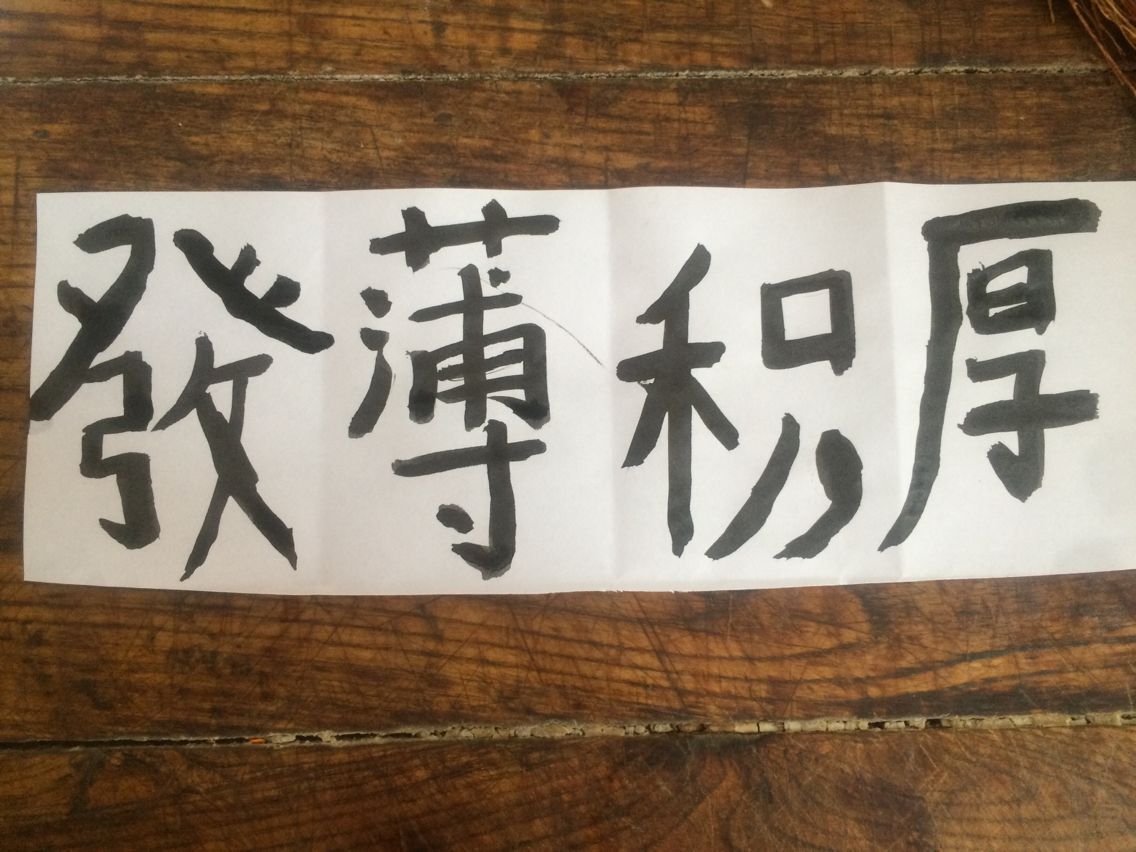 厚积薄發